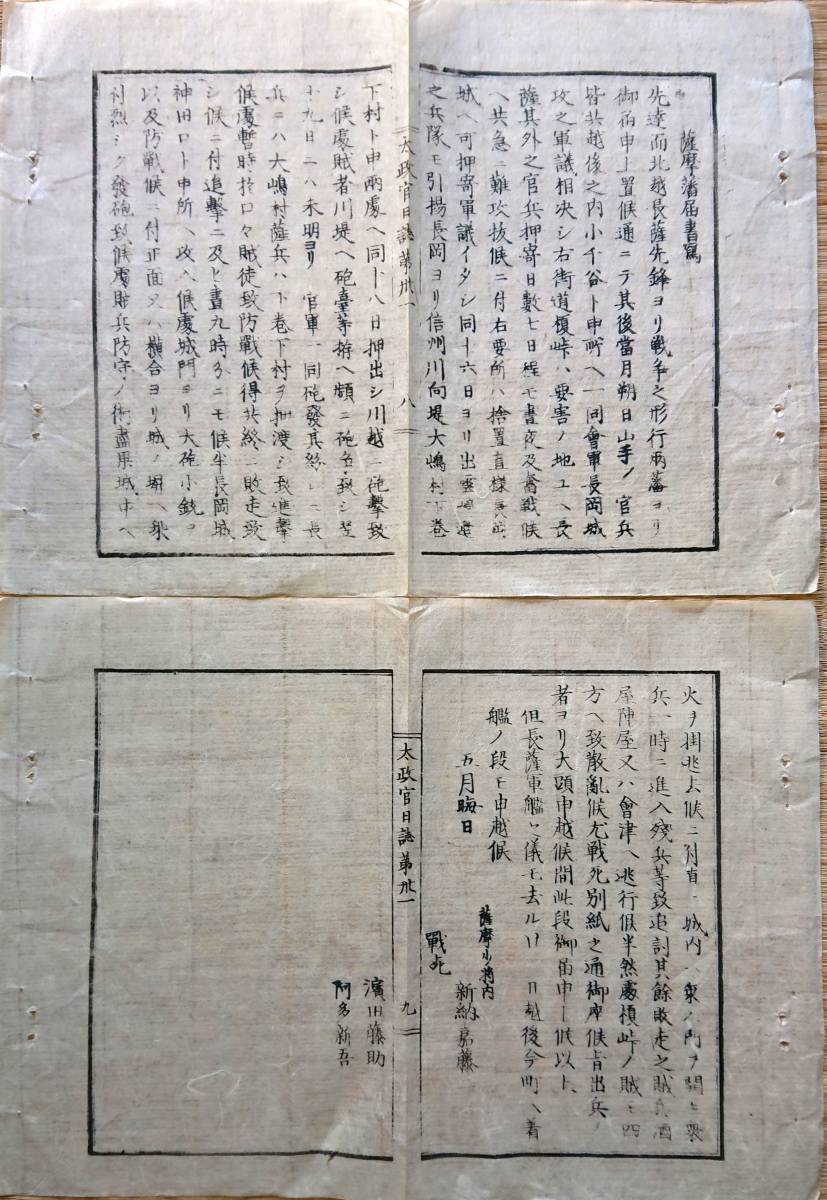 薩摩藩届書寫
先達而北越長薩先鋒ヨリ戰争之形行兩藩ヨリ
御届申上置候通ニテ其後當月朔日山手ノ官兵
皆共越後之内小千谷ト申所ヘ一同會軍長岡城
攻之軍議相決シ右街道榎峠ハ要害ノ地エヘ長
薩其外之官兵押寄日數七日程モ晝夜及奮戰候
ヘ共急ニ難攻抜候ニ付右要所ハ捨置直様長岡
城ヘ可押寄軍議イタシ同十六日ヨリ出雲崎邊
之兵隊モ引揚長岡ヨリ信州川向堤大嶋村下卷
下村ト申兩處ヘ同十八日押出シ川越ニ砲擊致
シ候處賊者川堤ヘ砲臺等拵ヘ頻ニ砲發致シ翌
十九日ニハ未明ヨリ官軍一同砲發真
兵ニハ大嶋村薩兵ハ下卷下村ヲ押渡シ致進擊
候處暫時於口々賊徒致防戰候得共終ニ敗走致
シ候ニ付追擊ニ及ヒ晝九時分ニモ候半長岡城
神田口ト申所ヘ攻入候處城門ヨリ大砲小銃ヲ
以及防戰候ニ付正面又ハ横合ヨリ城ノ塀ヘ乘
付烈シク發砲致候處賊兵防守ノ術盡果城中ヘ
太政官日誌第卅一
八
火ヲ掛逃去候ニ付直ニ城内ヘ乘入門ヲ開ヒ衆
兵一時ニ進入殘兵等致追討其餘敗走之賊兵酒
屋陣屋又ハ會津ヘ逃行候半然處榎峠ノ賊モ四
方ヘ致散亂候尤戰死別紙之通御座候旨出兵ノ
者ヨリ大頭申越候間此段御届申上候以上
但長薩軍艦之儀モ去ル 日越後今町ヘ着
艦ノ段モ申越候
五月晦日
薩摩少將内
新納嘉藤
戰死
濱田藤助
阿多新吾
太政官日誌第卅一
九